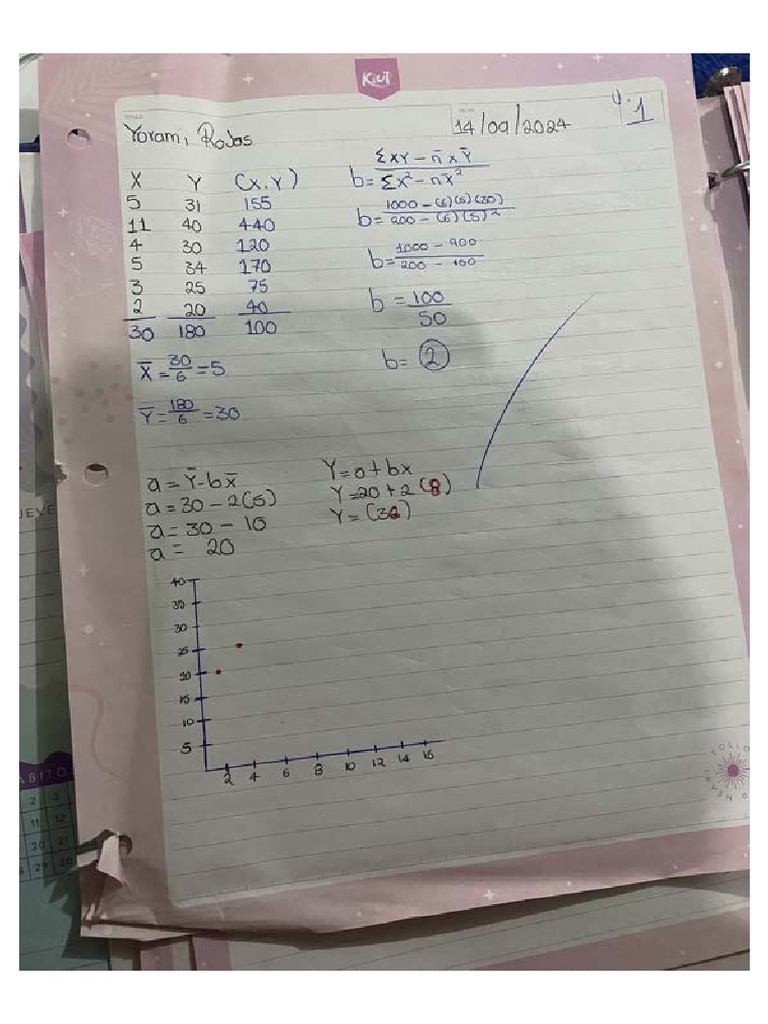 Kiut
Yoram, Rojas
14/09/2024
1
X Y (X.Y)
5 31 155
11 40 440
4 30 120
5 34 170
3 25 75
2 20 40
30 180 100
X̄=30/6=5
Ȳ=180/6=30
b= ΣXY-n̄x̄Ȳ / ΣX²-nX̄²
b= 1000-(6)(5)(30) / 200-(6)(5)²
b= 1000-900 / 200-100
b = 100 / 50
b= 2
a=Ȳ-bX̄
a=30-2(5)
a=30-10
a= 20
Y=a+bx
Y=20+2(8)
Y=(32)
40
35
30
25
20
15
10
5
2 4 6 8 10 12 14 16
UEVE
ABITO
2 3
11 12
20 21
29 30